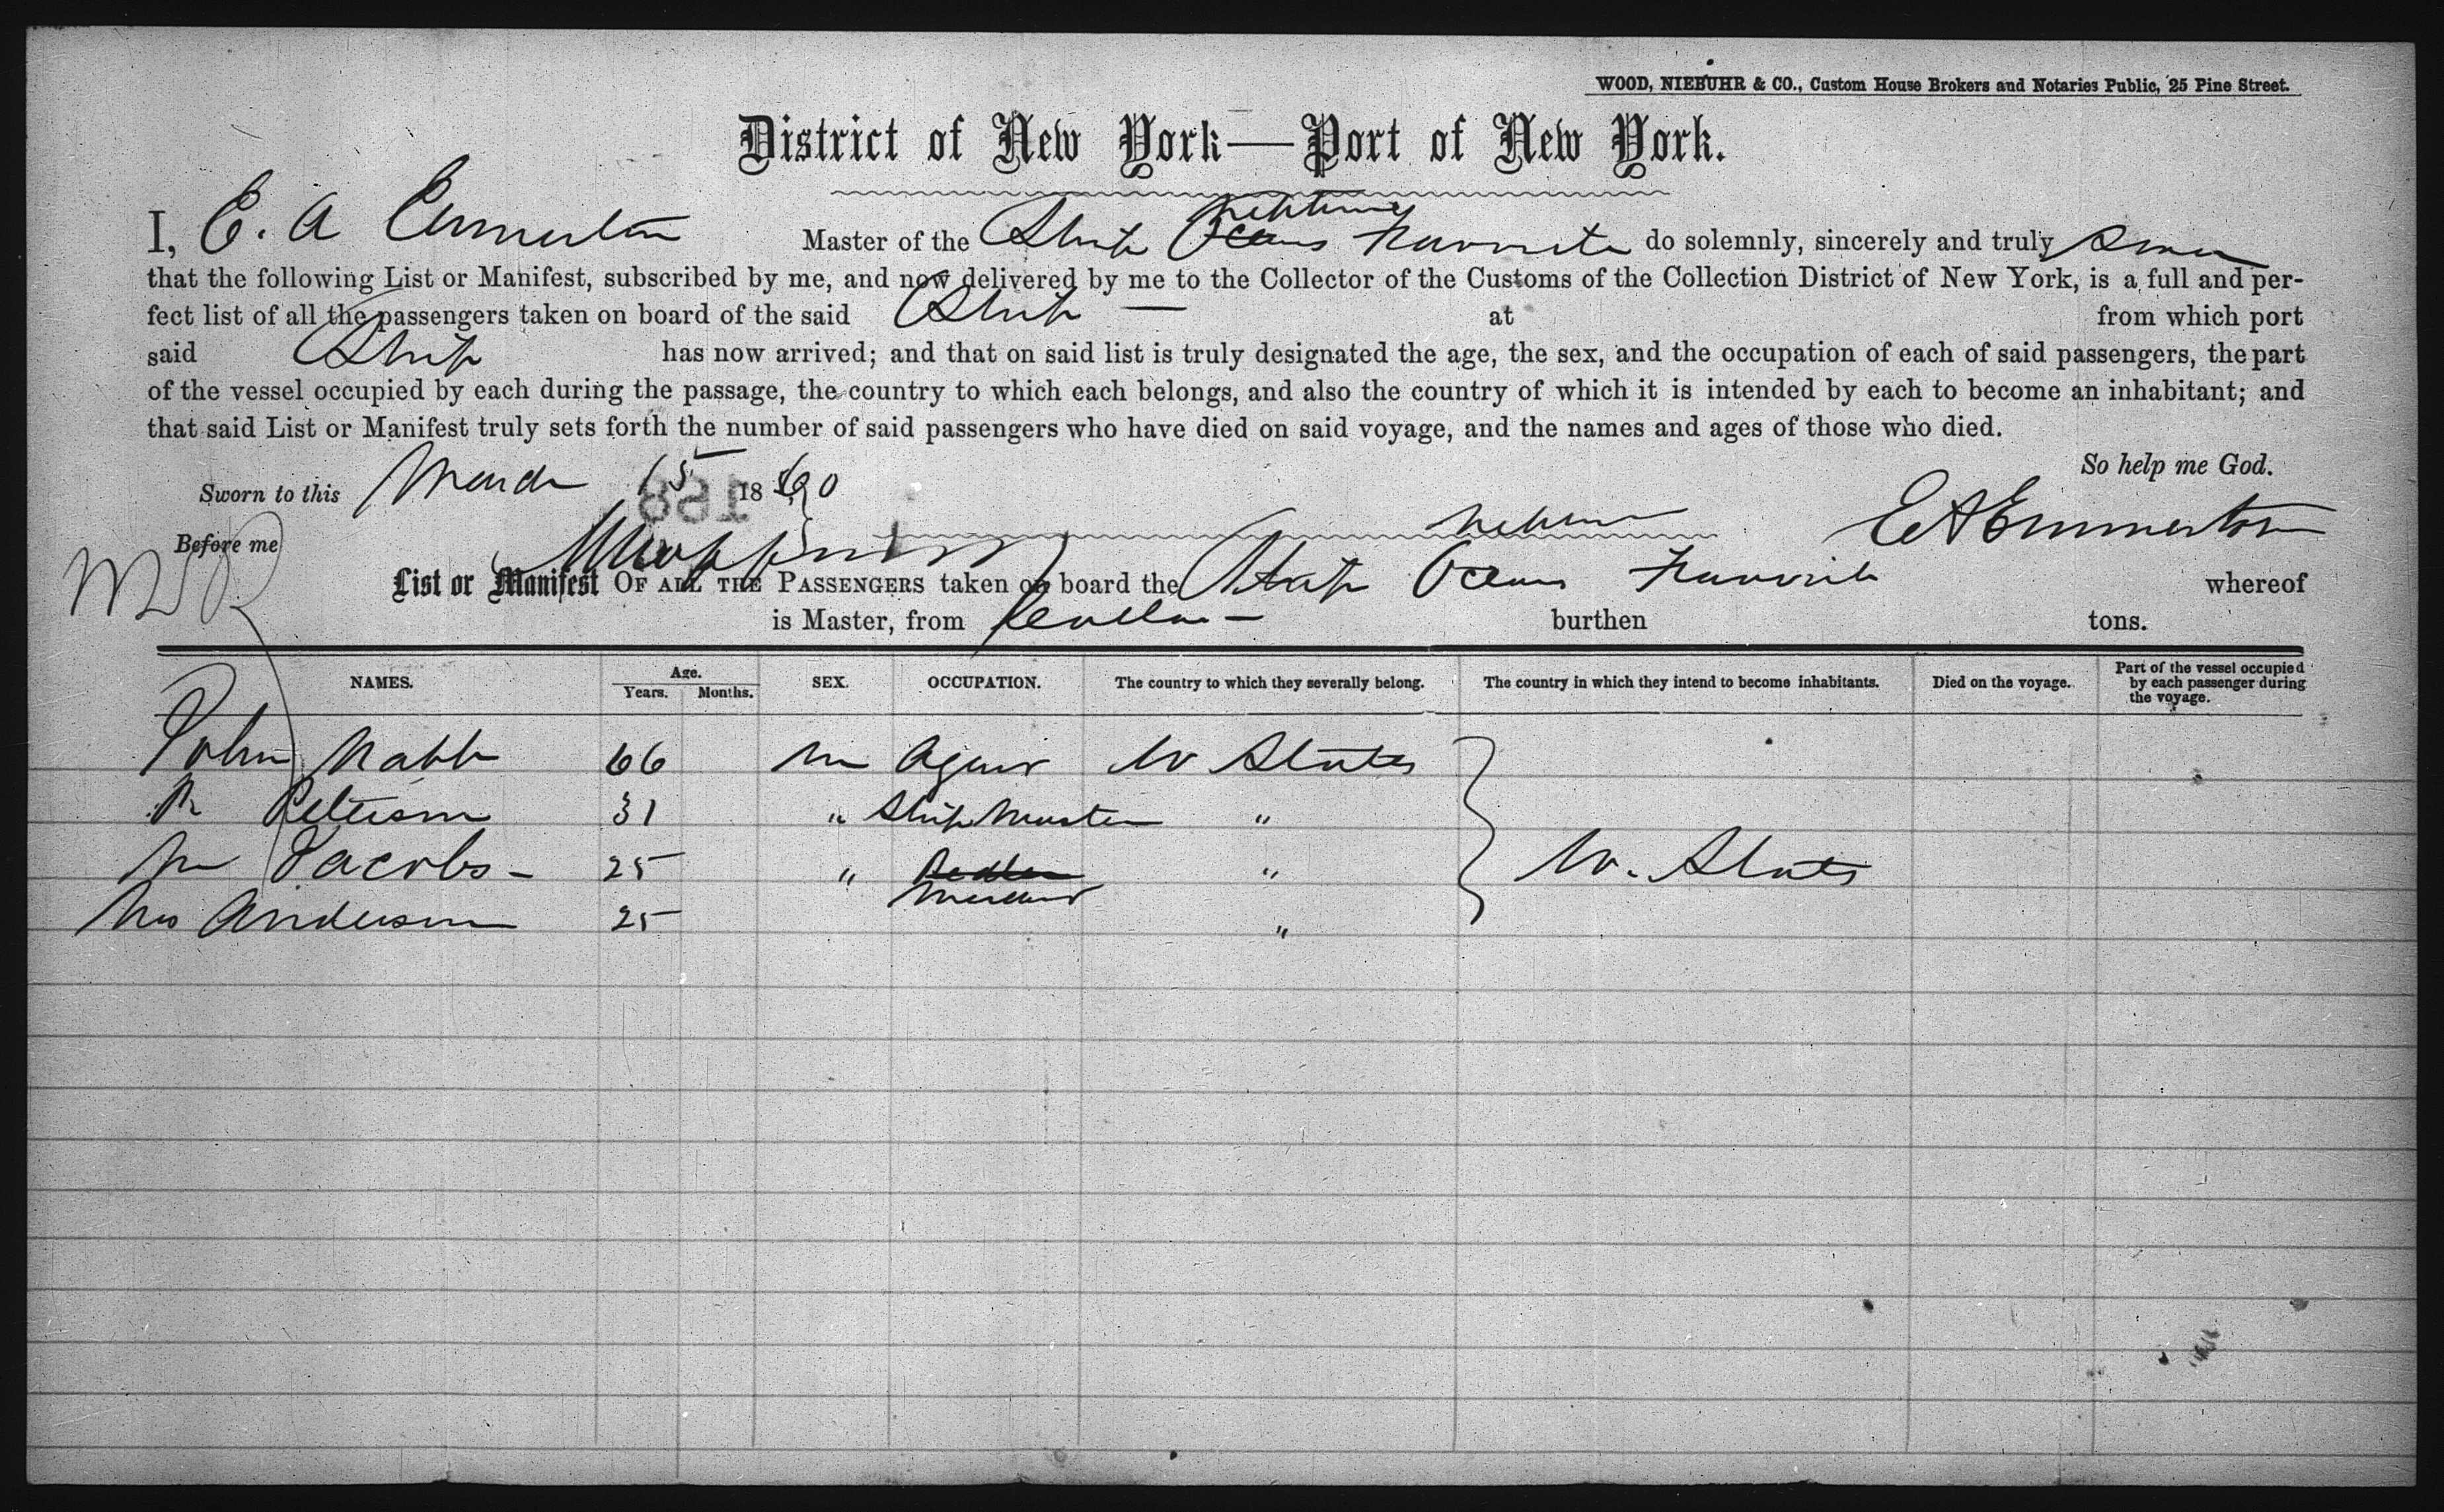 WOOD, NIEBUHR & CO., Custom House Brokers and Notaries Public, 25 Pine Street.
District of New York—Port of New York.
I, E. A Emmerton Master of the Ship Neptunes Favorite do solemnly, sincerely and truly swear
that the following List or Manifest, subscribed by me, and now delivered by me to the Collector of the Customs of the Collection District of New York, is a full and per-
fect list of all the passengers taken on board of the said Ship — at from which port
said Ship has now arrived; and that on said list is truly designated the age, the sex, and the occupation of each of said passengers, the part
of the vessel occupied by each during the passage, the country to which each belongs, and also the country of which it is intended by each to become an inhabitant; and
that said List or Manifest truly sets forth the number of said passengers who have died on said voyage, and the names and ages of those who died.
So help me God.
Sworn to this March 15 1860
Before me E A Emmerton
List or Manifest OF ALL THE PASSENGERS taken on board the Ship Ocean Favorite whereof
is Master, from Callao — burthen tons.
NAMES. Age. Years. Months. SEX. OCCUPATION. The country to which they severally belong. The country in which they intend to become inhabitants. Died on the voyage. Part of the vessel occupied by each passenger during the voyage.
John Nabb 66 m Agent U States
R Peterson 31 " Ship Master "
M Jacobs - 25 " Pedler Merchant " U. States
Mrs Anderson 25 "